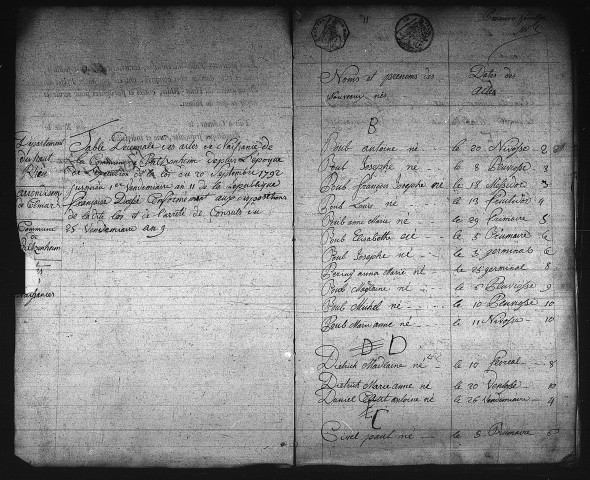 Département
du haut
Rhin
arrondissem
de Colmar
Commune
de
naissances
Table Decennale des actes de Naissance de
la Commune de
de la loi du 20 Septembre 1792
jusqu'au 1er Vendemiaire an 11 de la republique
française Dressé Conformement aux dispositions
de la dite Loi et de l'arreté de Consuls du
25 Vendemiaire an 9
11
Noms et prenoms des
nouveau nés
Dates des
actes
B
Boub antoine né le 20 Nivosse 2
Boub Josephe né le 8 Pluviosse 3
Boub françois Josephe né le 18 Messidor 3
Boub Louis né le 13 4
Boub anne Marie né le 29 Frimaire 5
Boub Elisabethe né le 8 Brumaire 6
Boub Josephe né le 3 germinal 6
anna Marie né le 25 germinal 8
Boub Magdlaine né le 6 Pluviosse 9
Boub Michel né le 10 Pluviosse 10
Boub Marianne né le 11 Nivosse 10
D D
Dietrich Madlaine né le 10 8
Dietrich Marie anne né le 20 Ventose 10
Daniel antoine né le 26 Vendemiaire 4
C
Civet paul né le 5 Brumaire 6